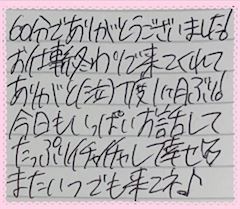 60分でありがとうございました!
お仕事終わりで来てくれて
ありがと(泣)丁度1ヶ月ぶり!
今日もいっぱいお話して
たっぷりイチャイチャして幸せ
またいつでも来てネ♪